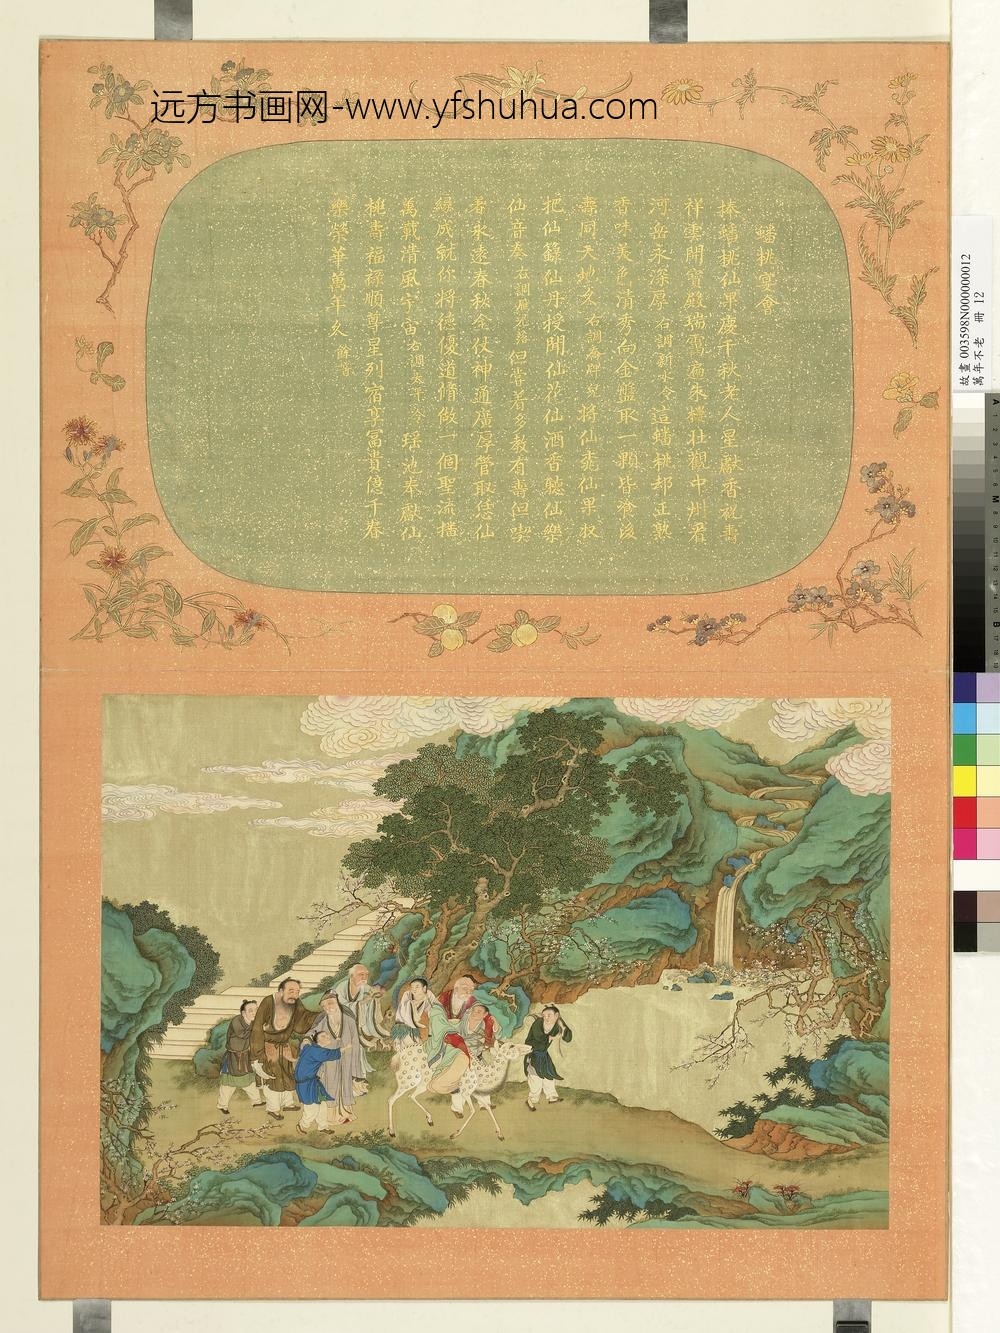 远方书画网-www.yfshuhua.com
蟠桃宴會
捧蟠桃仙果慶千秋老人星獻香祝壽
祥雲開寶殿瑞靄 朱樓壯觀中州看
河岳永深厚右調新水令這蟠桃却正熟
香味美色清秀向金盤取一顆皆食後
壽同天地久右調 將仙桃仙果収
把仙籙仙丹授開仙花仙酒香聽仙樂
仙音奏右調鴈兒落但嘗着多教有壽但喫
着永遠春秋全仗神通廣厚管取 仙
緣成就你將德優道脩做一個聖流播
萬載清風宇宙右調太平令瑤池奉獻仙
桃壽福祿順尊星列宿享富貴億千春
樂榮華萬年久
故畫 003598N000000012
萬年不老 冊 12